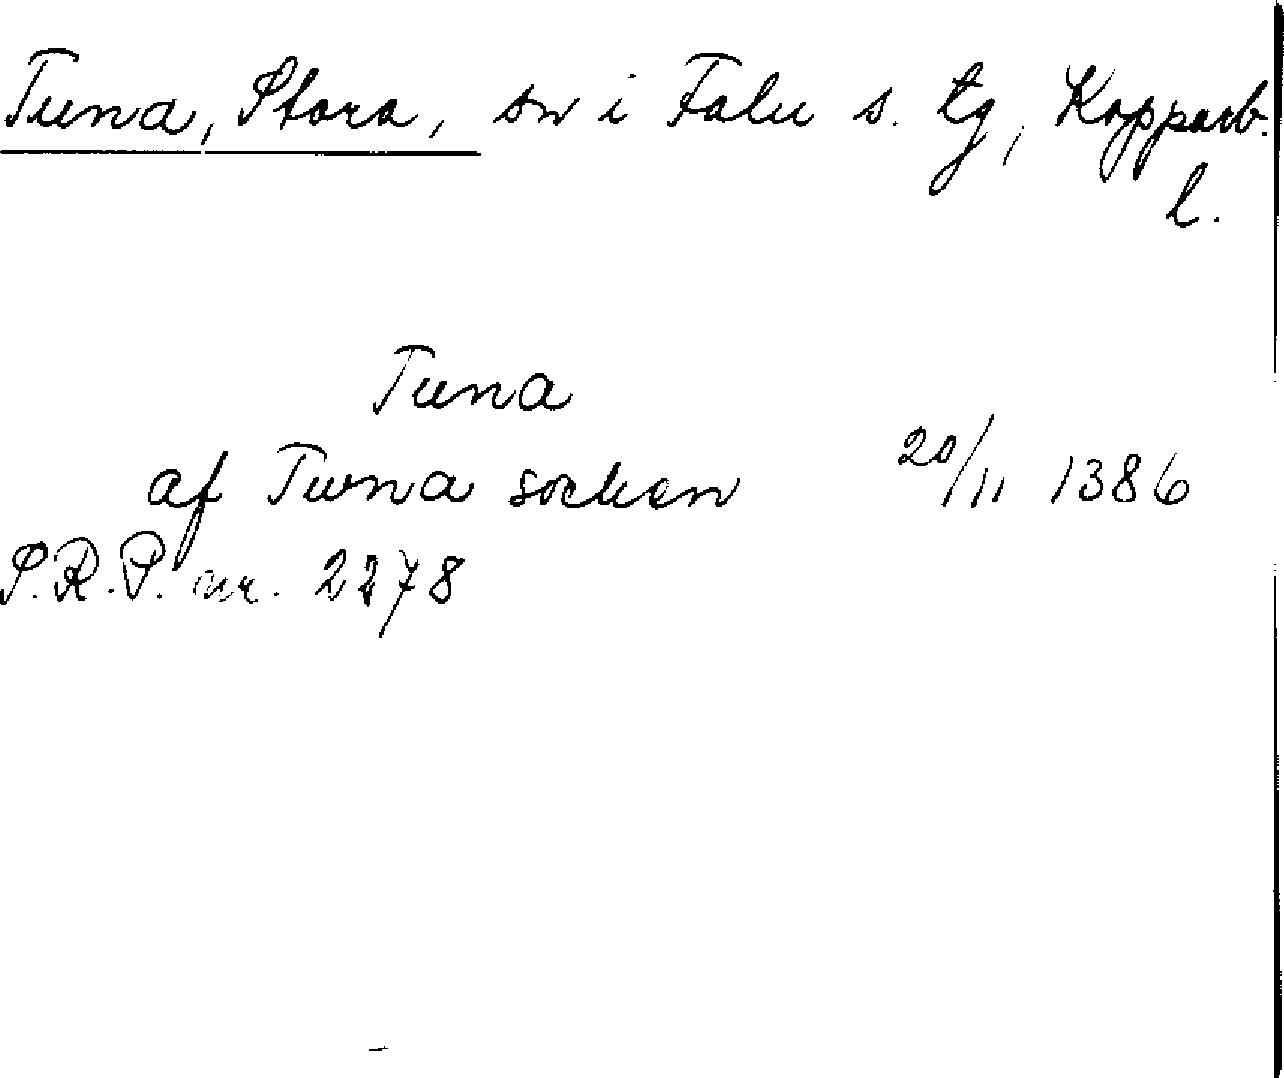 Tuna, Stora, sn i Falu s. tg, Kopparb.
l.
Tuna
af Twna socken 20/11 1386
S.R.P. nr. 2278